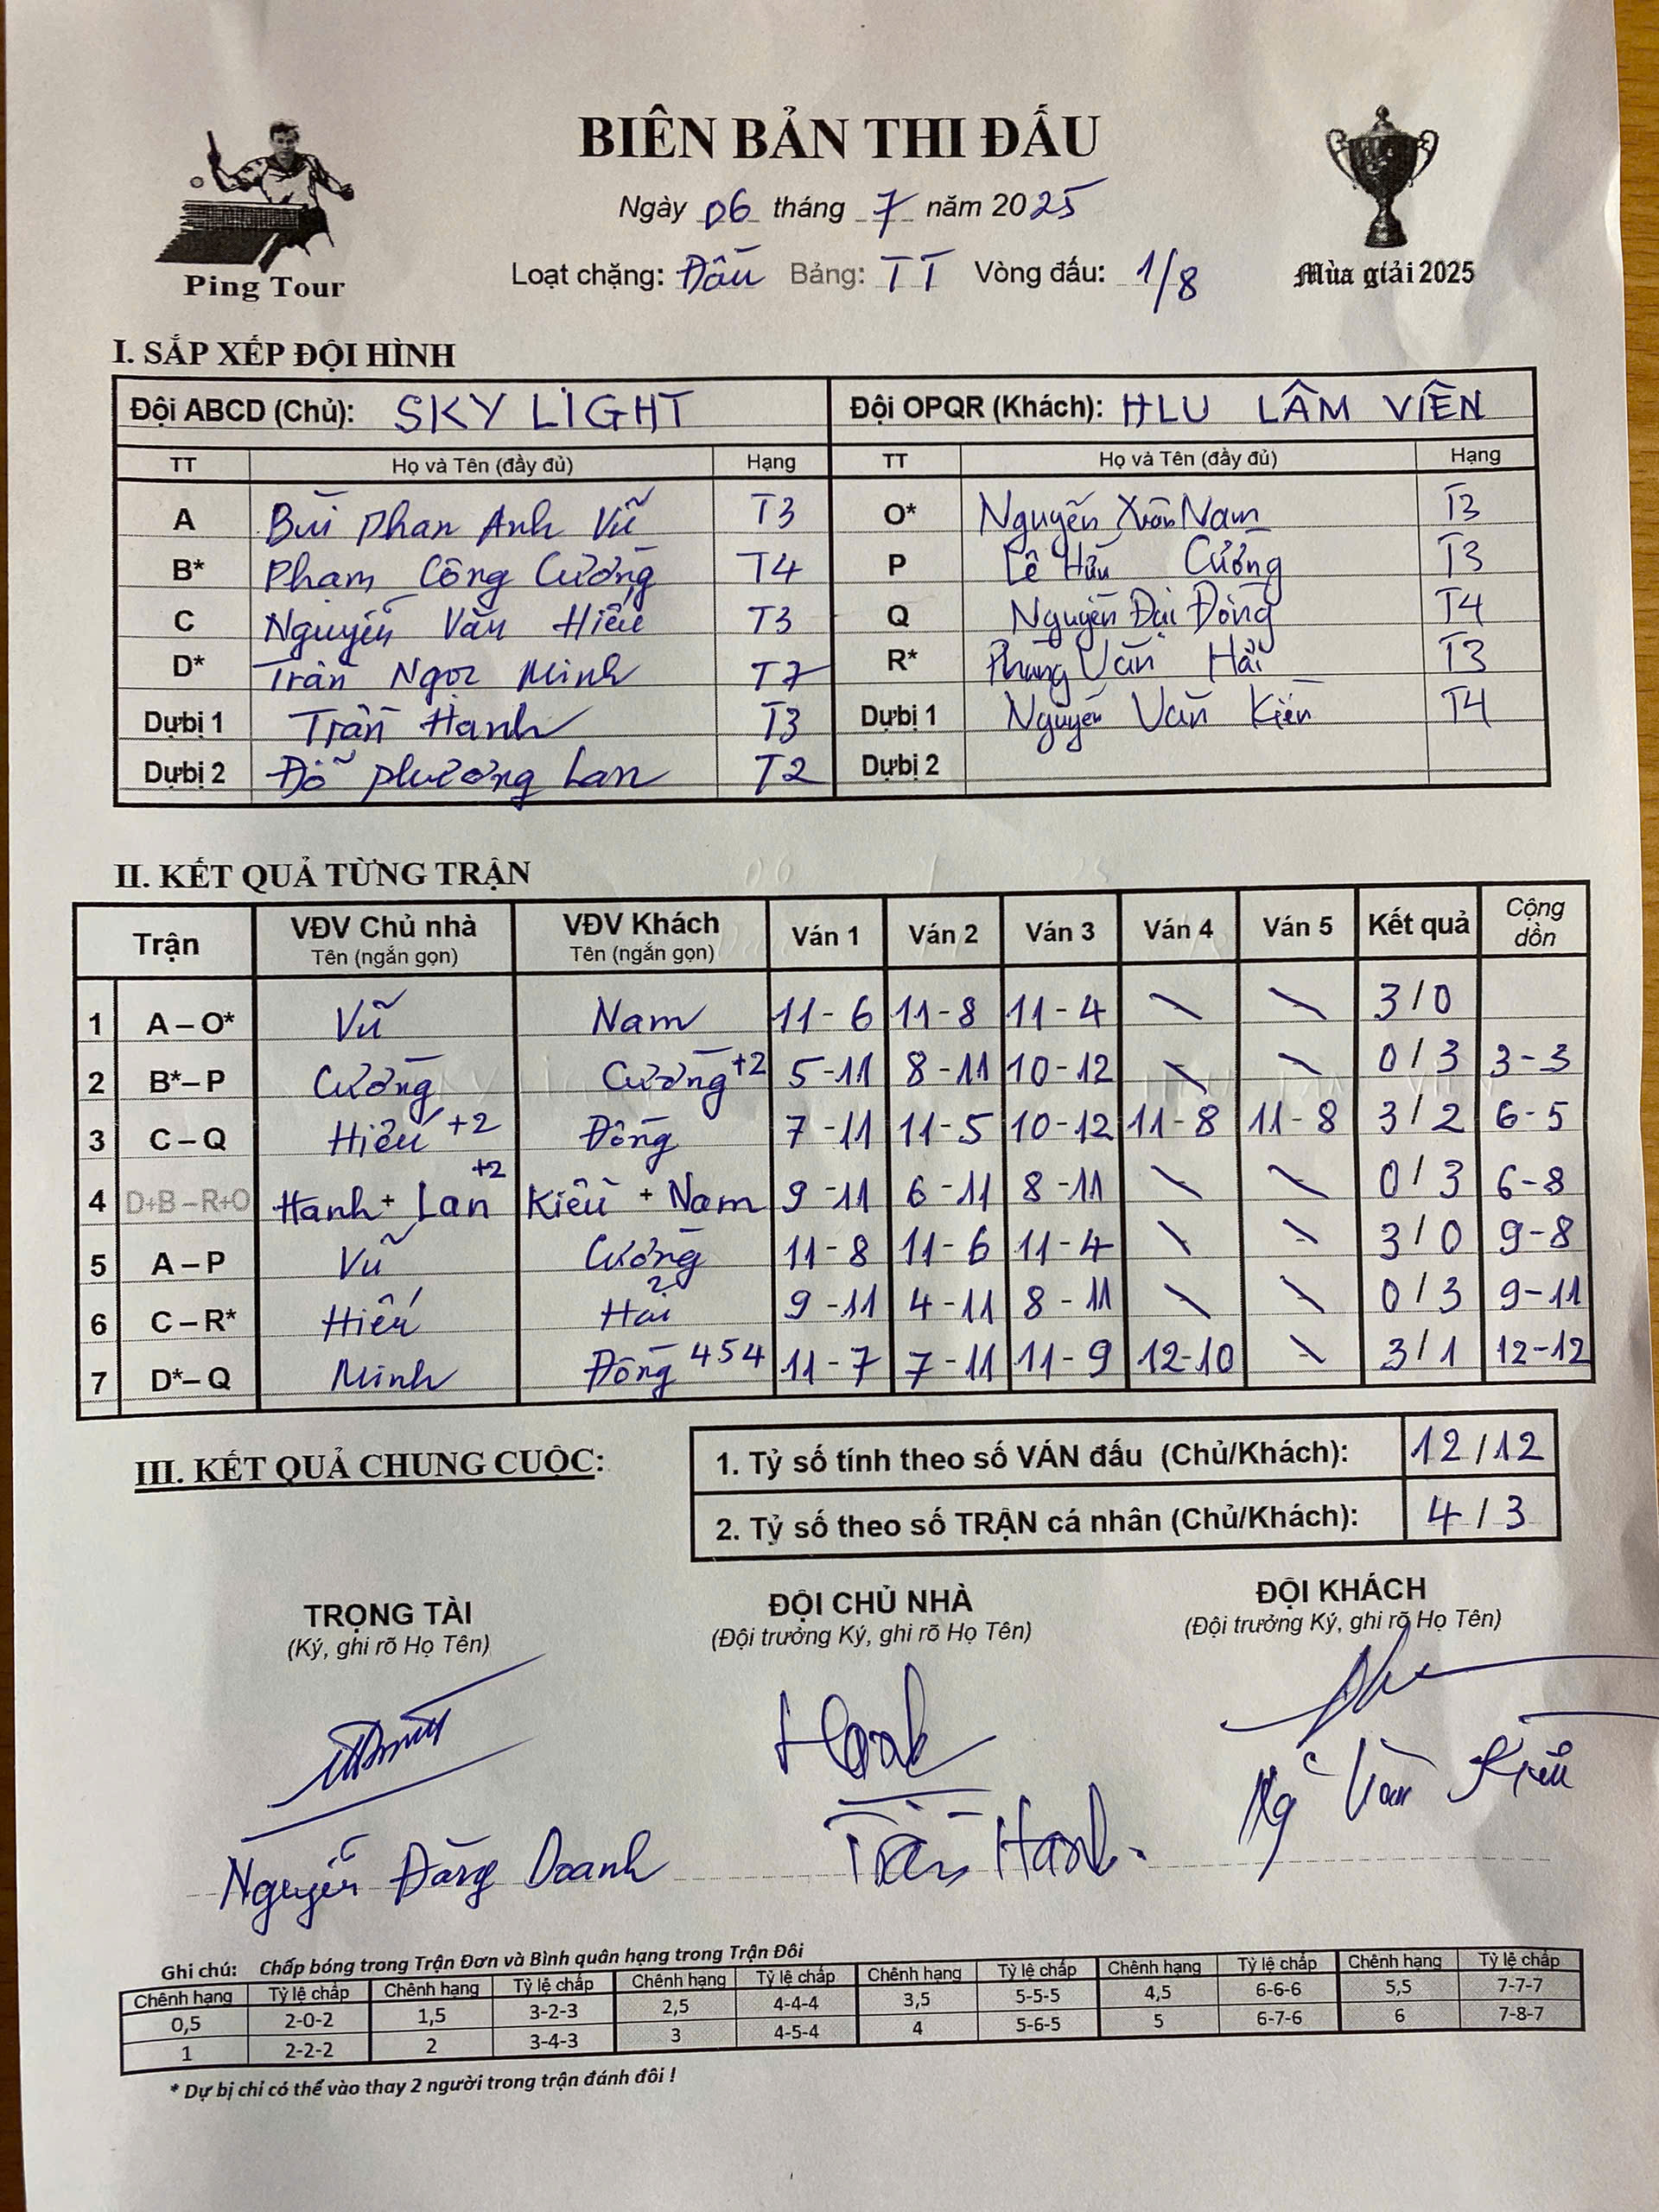 BIÊN BẢN THI ĐẤU
Ngày 06 tháng 7 năm 2025
Ping Tour
Loạt chặng: Đấu Bảng: TT Vòng đấu: 1/8
Mùa giải 2025
I. SẮP XẾP ĐỘI HÌNH
Đội ABCD (Chủ): SKY LIGHT Đội OPQR (Khách): HLU LÂM VIÊN
TT Họ và Tên (đầy đủ) Hạng TT Họ và Tên (đầy đủ) Hạng
A Bùi Phan Anh Vũ T3 O* Nguyễn Xuân Nam T3
B* Phạm Công Cường T4 P Lê Hữu Cường T3
C Nguyễn Văn Hiếu T3 Q Nguyễn Đại Đồng T4
D* Trần Ngọc Minh T7 R* Phùng Văn Hải T3
Dự bị 1 Trần Hạnh T3 Dự bị 1 Nguyễn Văn Kiên T4
Dự bị 2 Đỗ Phương Lan T2 Dự bị 2
II. KẾT QUẢ TỪNG TRẬN
Trận VĐV Chủ nhà Tên (ngắn gọn) VĐV Khách Tên (ngắn gọn) Ván 1 Ván 2 Ván 3 Ván 4 Ván 5 Kết quả Cộng dồn
1 A – O* Vũ Nam 11-6 11-8 11-4 \ \ 3/0
2 B*– P Cường Cường +2 5-11 8-11 10-12 \ \ 0/3 3-3
3 C – Q Hiếu +2 Đồng 7-11 11-5 10-12 11-8 11-8 3/2 6-5
4 D+B – R+O Hanh + Lan +2 Kiên + Nam 9-11 6-11 8-11 \ \ 0/3 6-8
5 A – P Vũ Cường 11-8 11-6 11-4 \ \ 3/0 9-8
6 C – R* Hiếu Hải 9-11 4-11 8-11 \ \ 0/3 9-11
7 D*– Q Minh Đồng 454 11-7 7-11 11-9 12-10 \ 3/1 12-12
III. KẾT QUẢ CHUNG CUỘC:
1. Tỷ số tính theo số VÁN đấu (Chủ/Khách): 12/12
2. Tỷ số theo số TRẬN cá nhân (Chủ/Khách): 4/3
TRỌNG TÀI ĐỘI CHỦ NHÀ ĐỘI KHÁCH
(Ký, ghi rõ Họ Tên) (Đội trưởng Ký, ghi rõ Họ Tên) (Đội trưởng Ký, ghi rõ Họ Tên)
Nguyễn Đăng Doanh Trần Hanh Ng Văn
Ghi chú: Chấp bóng trong Trận Đơn và Bình quân hạng trong Trận Đôi
Chênh hạng Tỷ lệ chấp Chênh hạng Tỷ lệ chấp Chênh hạng Tỷ lệ chấp Chênh hạng Tỷ lệ chấp Chênh hạng Tỷ lệ chấp Chênh hạng Tỷ lệ chấp
0,5 2-0-2 1,5 3-2-3 2,5 4-4-4 3,5 5-5-5 4,5 6-6-6 5,5 7-7-7
1 2-2-2 2 3-4-3 3 4-5-4 4 5-6-5 5 6-7-6 6 7-8-7
* Dự bị chỉ có thể vào thay 2 người trong trận đánh đôi !